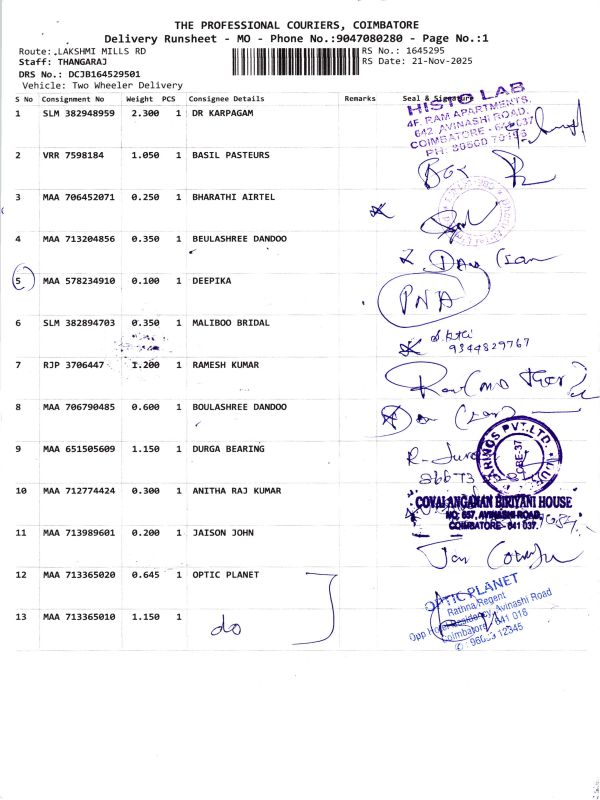 THE PROFESSIONAL COURIERS, COIMBATORE
Delivery Runsheet - MO - Phone No.:9047080280 - Page No.:1
Route: LAKSHMI MILLS RD RS No.: 1645295
Staff: THANGARAJ RS Date: 21-Nov-2025
DRS No.: DCJB164529501
Vehicle: Two Wheeler Delivery
S No Consignment No Weight PCS Consignee Details Remarks Seal & Signature
1 SLM 382948959 2.300 1 DR KARPAGAM
HISTO LAB
4F, RAM APARTMENTS,
642 AVINASHI ROAD,
COIMBATORE - 641037
2 VRR 7598184 1.050 1 BASIL PASTEURS
3 MAA 706452071 0.250 1 BHARATHI AIRTEL
4 MAA 713204856 0.350 1 BEULASHREE DANDOO
5 MAA 578234910 0.100 1 DEEPIKA
PNA
6 SLM 382894703 0.350 1 MALIBOO BRIDAL
9344829767
7 RJP 3706447 1.200 1 RAMESH KUMAR
8 MAA 706790485 0.600 1 BOULASHREE DANDOO
9 MAA 651505609 1.150 1 DURGA BEARING
10 MAA 712774424 0.300 1 ANITHA RAJ KUMAR
BIRIYANI HOUSE
NO: 657, AVINASHI ROAD,
COIMBATORE - 641 037.
11 MAA 713989601 0.200 1 JAISON JOHN
12 MAA 713365020 0.645 1 OPTIC PLANET
OPTIC PLANET
Rathna Regent
Opp Hotel Residency, Avinashi Road
Coimbatore - 641 018
13 MAA 713365010 1.150 1 do